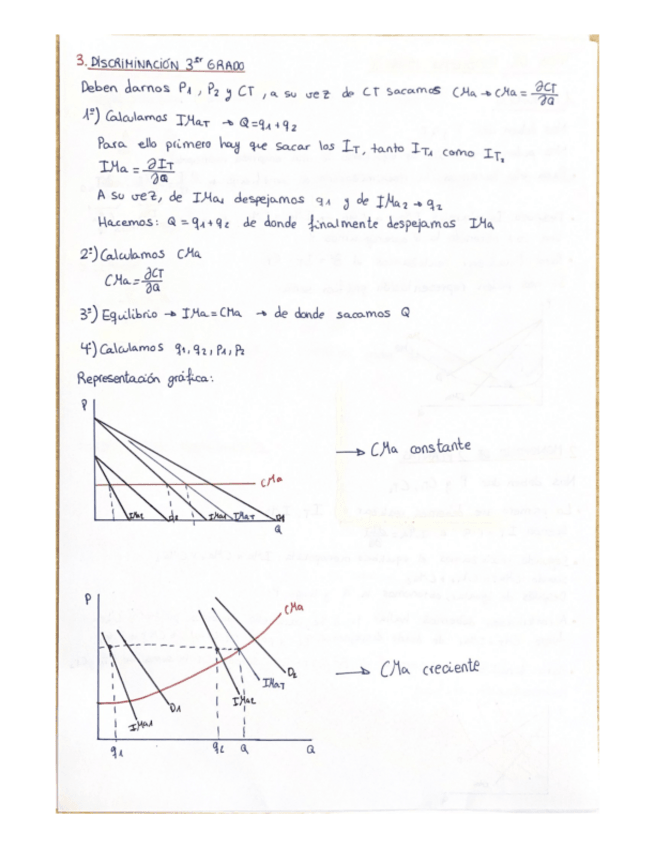 3. DISCRIMINACIÓN 3er GRADO
Deben darnos P1, P2 y CT, a su vez de CT sacamos CMa → CMa = ∂CT/∂Q
1º) Calculamos IMaT → Q = q1 + q2
Para ello primero hay que sacar los IT, tanto IT1 como IT2
IMa = ∂IT/∂Q
A su vez, de IMa1 despejamos q1 y de IMa2 → q2
Hacemos: Q = q1 + q2 de donde finalmente despejamos IMa
2º) Calculamos CMa
CMa = ∂CT/∂Q
3º) Equilibrio → IMa = CMa → de donde sacamos Q
4º) Calculamos q1, q2, P1, P2
Representación gráfica:
P
→ CMa constante
CMa
IMa2 d2 IMa1 IMaT D1
Q
P
CMa
→ CMa creciente
D2
IMaT
IMa2
D1
IMa1
q1 q2 Q Q